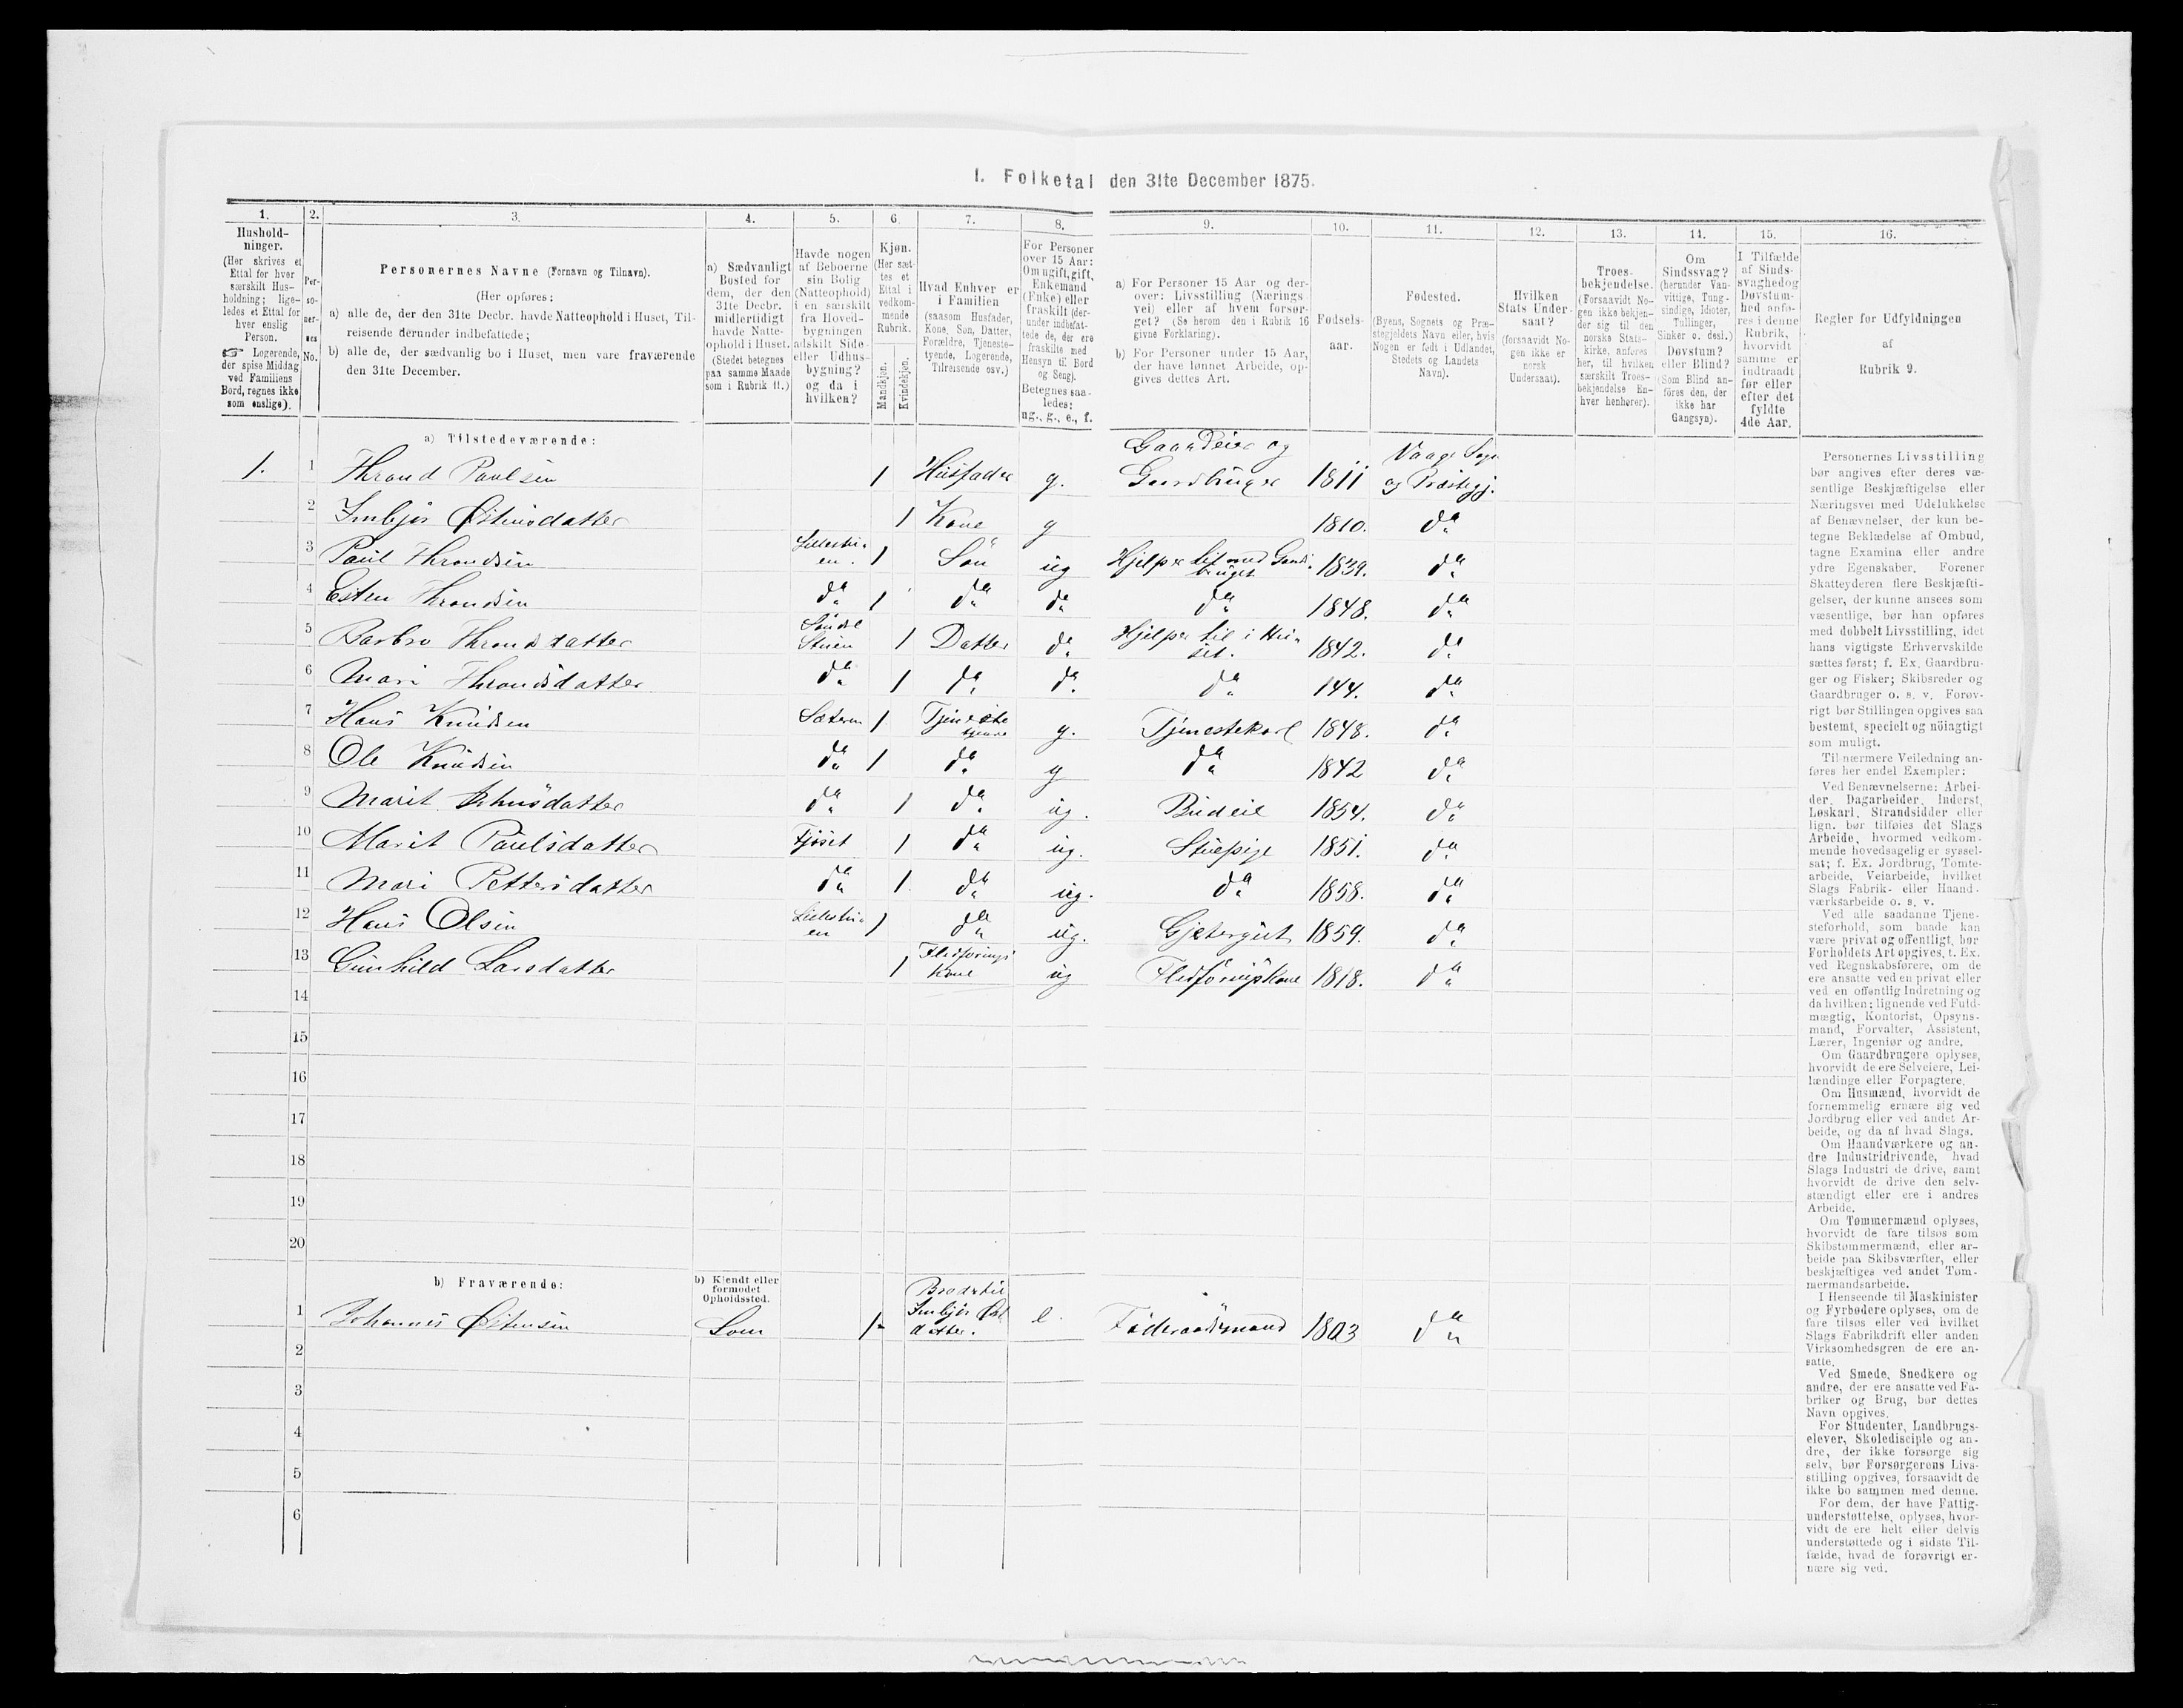 I. Folketal den 31te December 1875.
1. 2. 3. 4. 5. 6. 7. 8. 9. 10. 11. 12. 13. 14. 15. 16.
Hushold-
ninger.
(Her skrives et
Ettal for hver
særskilt Hus-
holdning; lige-
ledes et Ettal for
hver enslig
Person.
☞ Logerende,
der spise Middag
ved Familiens
Bord, regnes ikke
som enslige).
Per-
so-
ner-
nes
No.
Personernes Navne (Fornavn og Tilnavn).
(Her opføres:
a) alle de, der den 31te Decbr. havde Natteophold i Huset, Til-
reisende derunder indbefattede;
b) alle de, der sædvanlig bo i Huset, men vare fraværende
den 31te December.
a) Sædvanligt
Bosted for
dem, der den
31te Decbr.
midlertidigt
havde Natte-
ophold i Huset.
(Stedet betegnes
paa samme Maade
som i Rubrik 11.)
Havde nogen
af Beboerne
sin Bolig
(Natteophold)
i en særskilt
fra Hoved-
bygningen
adskilt Side-
eller Udhus-
bygning?
og da i
hvilken?
Kjøn.
(Her sæt-
tes et
Ettal i
vedkom-
mende
Rubrik.
Mandkjøn.
Kvindekjøn.
Hvad Enhver er
i Familien
(saasom Husfader,
Kone, Søn, Datter,
Forældre, Tjeneste-
tyende, Logerende,
Tilreisende osv.)
For Personer
over 15 Aar:
Om ugift, gift,
Enkemand
(Enke) eller
fraskilt (der-
under indbefat-
tede de, der ere
fraskilte med
Hensyn til Bord
og Seng).
Betegnes saa-
ledes:
ug., g., e., f.
a) For Personer 15 Aar og der-
over: Livsstilling (Nærings-
vei) eller af hvem forsør-
get? (Se herom den i Rubrik 16
givne Forklaring).
b) For Personer under 15 Aar,
der have lønnet Arbeide, op-
gives dettes Art.
Fødsels-
aar.
Fødested.
(Byens, Sognets og Præ-
stegjeldets Navn eller, hvis
Nogen er født i Udlandet,
Stedets og Landets
Navn).
Hvilken
Stats Under-
saat?
(forsaavidt No-
gen ikke er
norsk
Undersaat).
Troes-
bekjendelse.
(Forsaavidt No-
gen ikke bekjen-
der sig til den
norske Stats-
kirke, anføres
her, til hvilken
særskilt Troes-
bekjendelse En-
hver henhører).
Om
Sindssvag?
(herunder Van-
vittige, Tung-
sindige, Idioter,
Tullinger,
Sinker o. desl.)
Døvstum?
eller Blind?
(Som Blind an-
føres den, der
ikke har
Gangsyn).
I Tilfælde
af Sinds-
svaghedog
Døvstum-
hed anfø-
res i denne
Rubrik,
hvorvidt
samme er
indtraadt
før eller
efter det
fyldte
4de Aar.
Regler for Udfyldningen
af
Rubrik 9.
a) Tilstedeværende:
1. 1 Thrond Paulsen 1 Husfader g. Gaardeier og Gaardbruger 1811 Vaage Sogn og Præstegj.
2 Imbjør Østensdatter 1 Kone g 1810. do
3 Paul Throndsen 1 Søn ug Hjelper til med Gaardsbruget 1839. do
4 Esten Throndsen do 1 do do do 1848. do
5 Barbro Throndsdatter Stuen 1 Datter do Hjelper til i Huset. 1842. do
6 Mari Throndsdatter do 1 do do do 144. do
7 Hans Knudsen 1 Tjeneste g. Tjenestekarl 1848. do
8 Ole Knudsen do 1 do g do 1842 do
9 Marit Johnsdatter do 1 do ug. Budeie 1854. do
10 Marit Paulsdatter Fjøset 1 do ug. Stuepige 1851. do
11 Mari Pettersdatter do 1 do ug. do 1858. do
12 Hans Olsen 1 do ug. Gjætergut 1859. do
13 Gunhild Larsdatter 1 Flidførings Kone ug Flidføringskone 1818. do
14
15
16
17
18
19
20
b) Fraværende:
b) Kjendt eller
formodet
Opholdssted.
1 Johannes Østensen Lom 1 Broder til Imbjør Øst datter. e Føderaadsmand 1803 do
2
3
4
5
6
Personernes Livsstilling
bør angives efter deres væ-
sentlige Beskjæftigelse eller
Næringsvei med Udelukkelse
af Benævnelser, der kun be-
tegne Beklædelse af Ombud,
tagne Examina eller andre
ydre Egenskaber. Forener
Skatteyderen flere Beskjæfti-
gelser, der kunne ansees som
væsentlige, bør han opføres
med dobbelt Livsstilling, idet
hans vigtigste Erhvervskilde
sættes først; f. Ex. Gaardbru-
ger og Fisker; Skibsreder og
Gaardbruger o. s. v. Forøv-
rigt bør Stillingen opgives saa
bestemt, specielt og nöiagtigt
som muligt.
Til nærmere Veiledning an-
føres her endel Exempler:
Ved Benævnelserne: Arbei-
der, Dagarbeider, Inderst,
Løskarl, Strandsidder eller
lign. bør tilføies det Slags
Arbeide, hvormed vedkom-
mende hovedsagelig er syssel-
sat; f. Ex. Jordbrug, Tomte-
arbeide, Veiarbeide, hvilket
Slags Fabrik- eller Haand-
værksarbeide o. s. v.
Ved alle saadanne Tjene-
steforhold, som baade kan
være privat og offentligt, bør
Forholdets Art opgives, t. Ex.
ved Regnskabsførere, om de
ere ansatte ved en privat eller
ved en offentlig Indretning og
da hvilken; lignende ved Fuld-
mægtig, Kontorist, Opsyns-
mand, Forvalter, Assistent,
Lærer, Ingeniør og andre.
Om Gaardbrugere oplyses,
hvorvidt de ere Selveiere, Lei-
lændinge eller Forpagtere.
Om Husmænd, hvorvidt de
fornemmelig ernære sig ved
Jordbrug eller ved andet Ar-
beide, og da af hvad Slags.
Om Haandværkere og an-
dre Industridrivende, hvad
Slags Industri de drive, samt
hvorvidt de drive den selv-
stændigt eller ere i andres
Arbeide.
Om Tømmermænd oplyses,
hvorvidt de fare tilsøs som
Skibstømmermænd, eller ar-
beide paa Skibsværfter, eller
beskjæftiges ved andet Tøm-
mermandsarbeide.
I Henseende til Maskinister
og Fyrbødere oplyses, om de
fare tilsøs eller ved hvilket
Slags Fabrikdrift eller anden
Virksomhedsgren de ere an-
satte.
Ved Smede, Snedkere og
andre, der ere ansatte ved Fa-
briker og Brug, bør dettes
Navn opgives.
For Studenter, Landbrugs-
elever, Skoledisciple og an-
dre, der ikke forsørge sig
selv, bør Forsørgerens Livs-
stilling opgives, forsaavidt de
ikke bo sammen med denne.
For dem, der have Fattig-
understøttelse, oplyses, hvor-
vidt de ere helt eller delvis
understøttede og i sidste Til-
fælde, hvad de forøvrigt er-
nære sig ved.